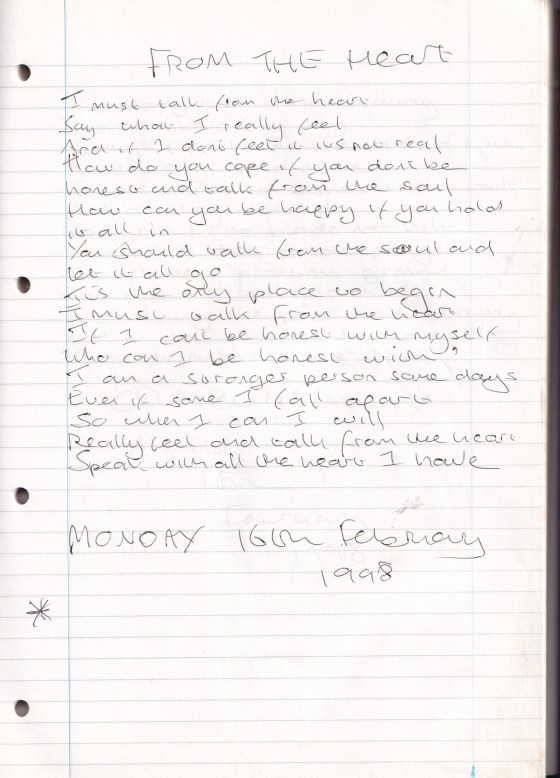 FROM THE HEART
I must talk from the heart
Say what I really feel
And if I dont feel it its not real
How do you cope if you dont be
honest and talk from the soul
How can you be happy if you hold
it all in
You should talk from the soul and
let it all go
Tis the only place to begin
I must talk from the heart
If I cant be honest with myself
Who can I be honest with?
I am a stronger person some days
Even if some I fall apart
So when I can I will
Really feel and talk from the heart
Speak with all the heart I have
MONDAY 16th February
1998